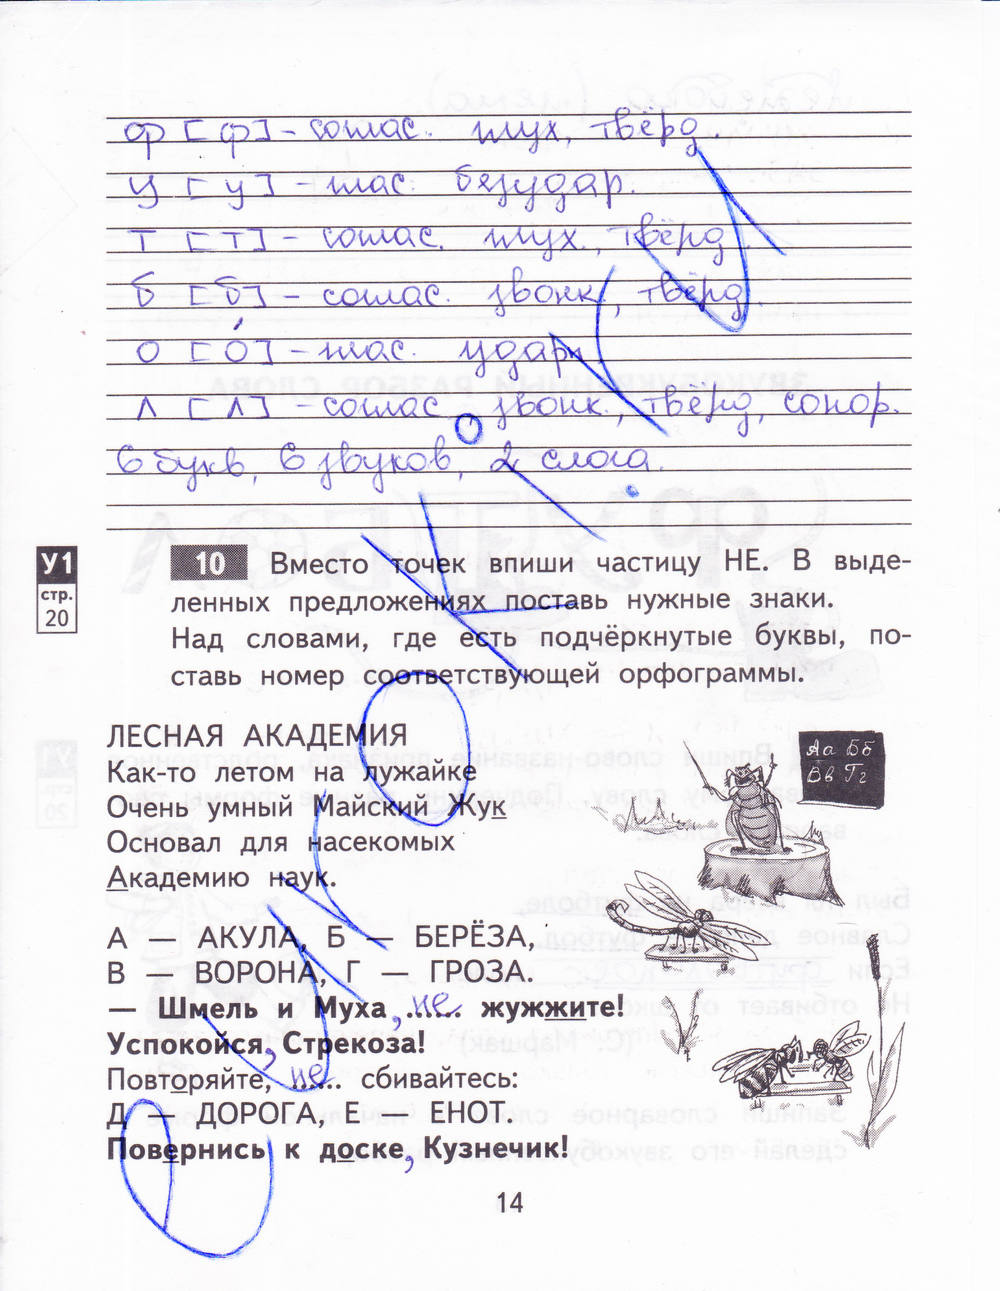 ф [ф] – соглас. глух., твёрд.
у [у] – глас. безудар.
т [т] – соглас. глух., твёрд.
б [б] – соглас. звонк., твёрд.
о [о́] – глас. ударн.
л [л] – соглас., звонк., твёрд, сонор.
6 букв, 6 звуков, 2 слога.
У1
стр.
20
10 Вместо точек впиши частицу НЕ. В выде-
ленных предложениях поставь нужные знаки.
Над словами, где есть подчёркнутые буквы, по-
ставь номер соответствующей орфограммы.
ЛЕСНАЯ АКАДЕМИЯ
Как-то летом на лужайке
Очень умный Майский Жук
Основал для насекомых
Академию наук.
Аа Бб
Вв Гг
А — АКУЛА, Б — БЕРЁЗА,
В — ВОРОНА, Г — ГРОЗА.
— Шмель и Муха, не жужжите!
Успокойся, Стрекоза!
Повторяйте, не сбивайтесь:
Д — ДОРОГА, Е — ЕНОТ.
Повернись к доске, Кузнечик!
14